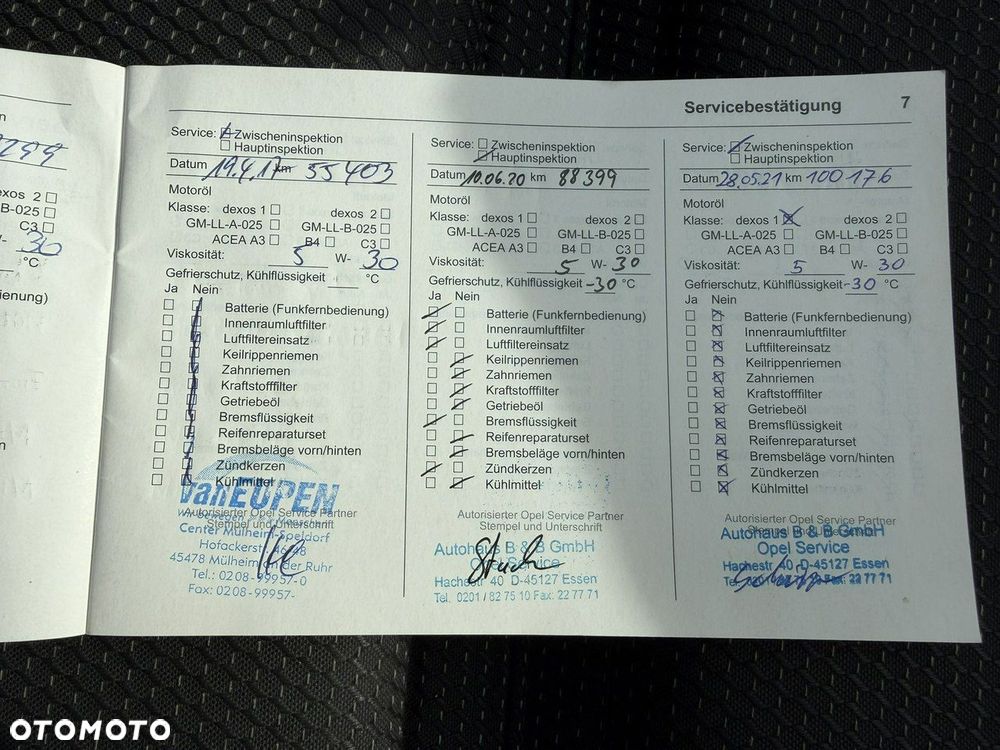 Servicebestätigung 7
2299
exos 2
L-B-025
C3
W- 30
°C
ienung)
Service: Zwischeninspektion
Hauptinspektion
Datum 19.4.17 km 55403
Motoröl
Klasse: dexos 1 dexos 2
GM-LL-A-025 GM-LL-B-025
ACEA A3 B4 C3
Viskosität: 5 W- 30
Gefrierschutz, Kühlflüssigkeit °C
Ja Nein
Batterie (Funkfernbedienung)
Innenraumluftfilter
Luftfiltereinsatz
Keilrippenriemen
Zahnriemen
Kraftstofffilter
Getriebeöl
Bremsflüssigkeit
Reifenreparaturset
Bremsbeläge vorn/hinten
Zündkerzen
Kühlmittel
vanEUPEN
Autorisierter Opel Service Partner
Stempel und Unterschrift
Center Mülheim-Speldorf
Hofackerstr.
45478 Mülheim der Ruhr
Tel.: 0208-99957-0
Fax: 0208-99957-
Service: Zwischeninspektion
Hauptinspektion
Datum 10.06.20 km 88399
Motoröl
Klasse: dexos 1 dexos 2
GM-LL-A-025 GM-LL-B-025
ACEA A3 B4 C3
Viskosität: 5 W- 30
Gefrierschutz, Kühlflüssigkeit -30 °C
Ja Nein
Batterie (Funkfernbedienung)
Innenraumluftfilter
Luftfiltereinsatz
Keilrippenriemen
Zahnriemen
Kraftstofffilter
Getriebeöl
Bremsflüssigkeit
Reifenreparaturset
Bremsbeläge vorn/hinten
Zündkerzen
Kühlmittel
Autorisierter Opel Service Partner
Stempel und Unterschrift
Autohaus B & B GmbH
Opel Service
Hachestr 40 D-45127 Essen
Tel. 0201 / 82 75 10 Fax: 22 77 71
Service: Zwischeninspektion
Hauptinspektion
Datum 28.05.21 km 100176
Motoröl
Klasse: dexos 1 dexos 2
GM-LL-A-025 GM-LL-B-025
ACEA A3 B4 C3
Viskosität: 5 W- 30
Gefrierschutz, Kühlflüssigkeit -30 °C
Ja Nein
Batterie (Funkfernbedienung)
Innenraumluftfilter
Luftfiltereinsatz
Keilrippenriemen
Zahnriemen
Kraftstofffilter
Getriebeöl
Bremsflüssigkeit
Reifenreparaturset
Bremsbeläge vorn/hinten
Zündkerzen
Kühlmittel
Autorisierter Opel Service Partner
Stempel und Unterschrift
Autohaus B & B GmbH
Opel Service
Hachestr 40 D-45127 Essen
22 77 71
OTOMOTO